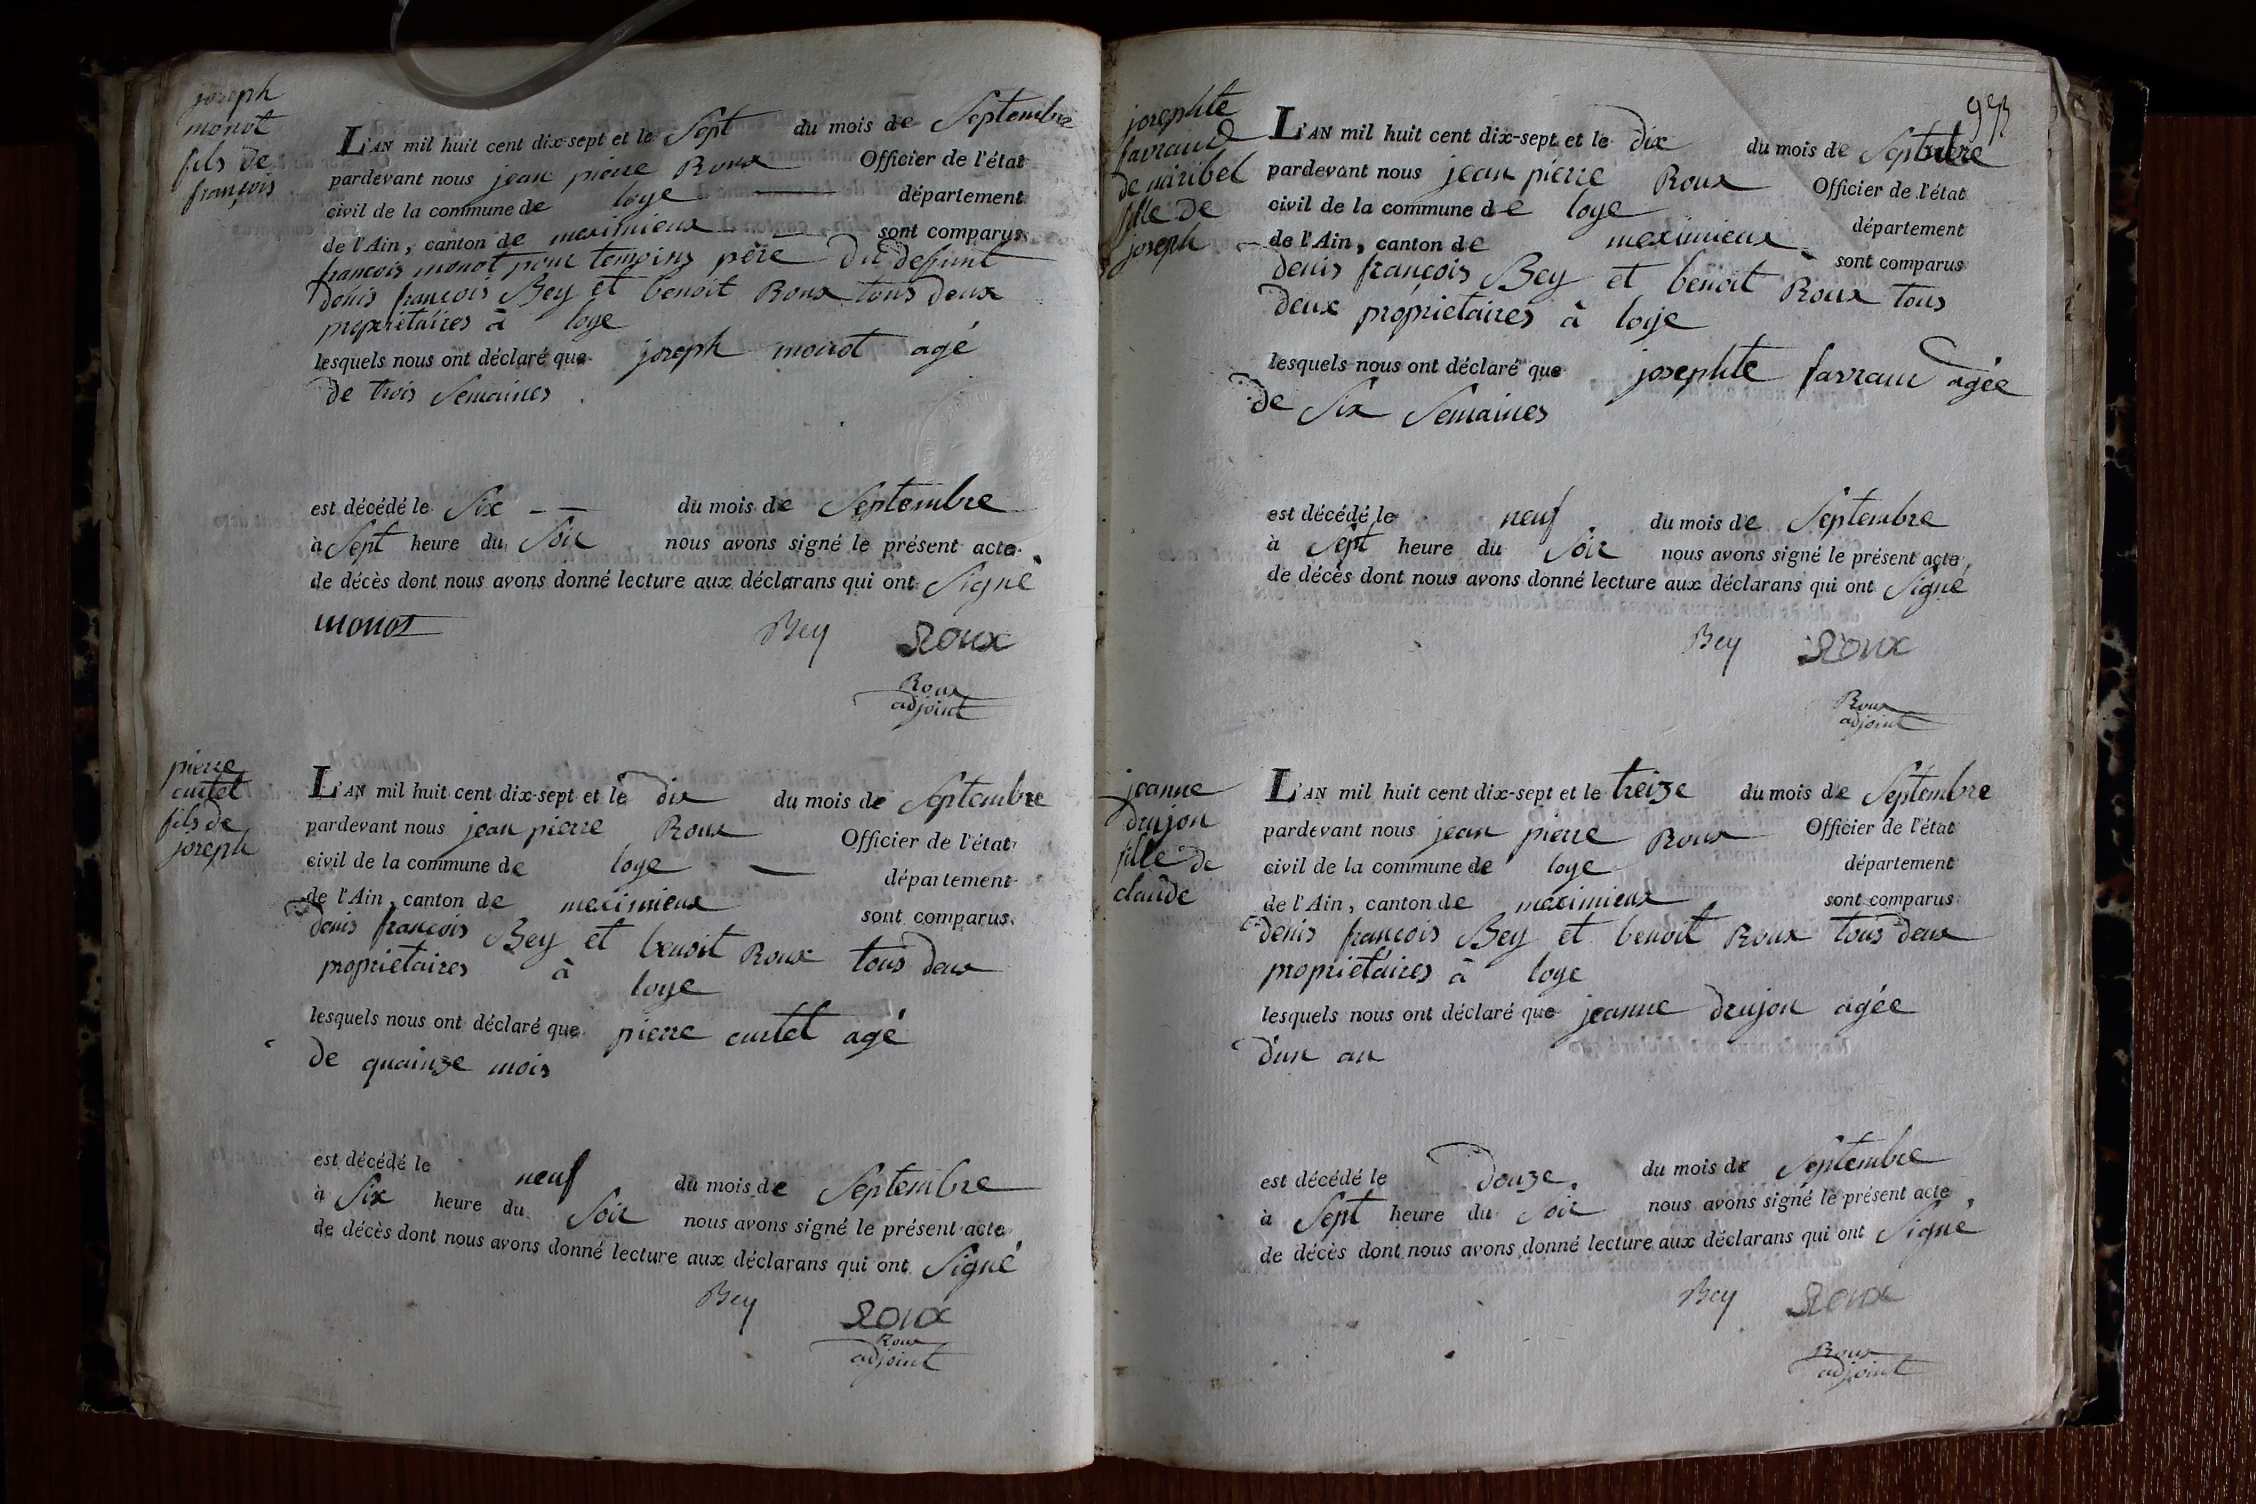 joseph
monot
fils de
françois
L'AN mil huit cent dix-sept et le Sept du mois de Septembre
pardevant nous jean pierre Roux Officier de l'état
civil de la commune de loye département
de l'Ain, canton de meximieux sont comparus
françois monot pour temoins père du defunt
denis françois Bey et benoit Roux tous deux
propriétaires à loye
lesquels nous ont déclaré que joseph monot agé
de trois Semaines
est décédé le Six du mois de Septembre
à Sept heure du Soir nous avons signé le présent acte
de décès dont nous avons donné lecture aux déclarans qui ont Signé
monot Bey Roux
Roux
adjoint
pierre
curtet
fils de
joseph
L'AN mil huit cent dix-sept et le dix du mois de Septembre
pardevant nous jean pierre Roux Officier de l'état
civil de la commune de loye département
de l'Ain, canton de meximieux sont comparus
denis françois Bey et benoit Roux tous deux
propriétaires à loye
lesquels nous ont déclaré que pierre curtet agé
de quainze mois
est décédé le neuf du mois de Septembre
à Six heure du Soir nous avons signé le présent acte
de décès dont nous avons donné lecture aux déclarans qui ont Signé
Bey Roux
Roux
adjoint
josephte
favraud
de miribel
fille de
joseph
L'AN mil huit cent dix-sept et le dix du mois de Septembre
pardevant nous jean pierre Roux Officier de l'état
civil de la commune de loye département
de l'Ain, canton de meximieux sont comparus
denis françois Bey et benoit Roux tous
deux proprietaires à loye
lesquels nous ont déclaré que josephte favraud agée
de Six Semaines
est décédé le neuf du mois de Septembre
à Sept heure du Soir nous avons signé le présent acte
de décès dont nous avons donné lecture aux déclarans qui ont Signé
Bey Roux
Roux
adjoint
jeanne
drujon
fille de
claude
L'AN mil huit cent dix-sept et le treize du mois de Septembre
pardevant nous jean pierre Roux Officier de l'état
civil de la commune de loye département
de l'Ain, canton de meximieux sont comparus
denis françois Bey et benoit Roux tous deux
propriétaires à loye
lesquels nous ont déclaré que jeanne drujon agée
d'un an
est décédé le Douze du mois de Septembre
à Sept heure du Soir nous avons signé le présent acte
de décès dont nous avons donné lecture aux déclarans qui ont Signé
Bey Roux
Roux
adjoint